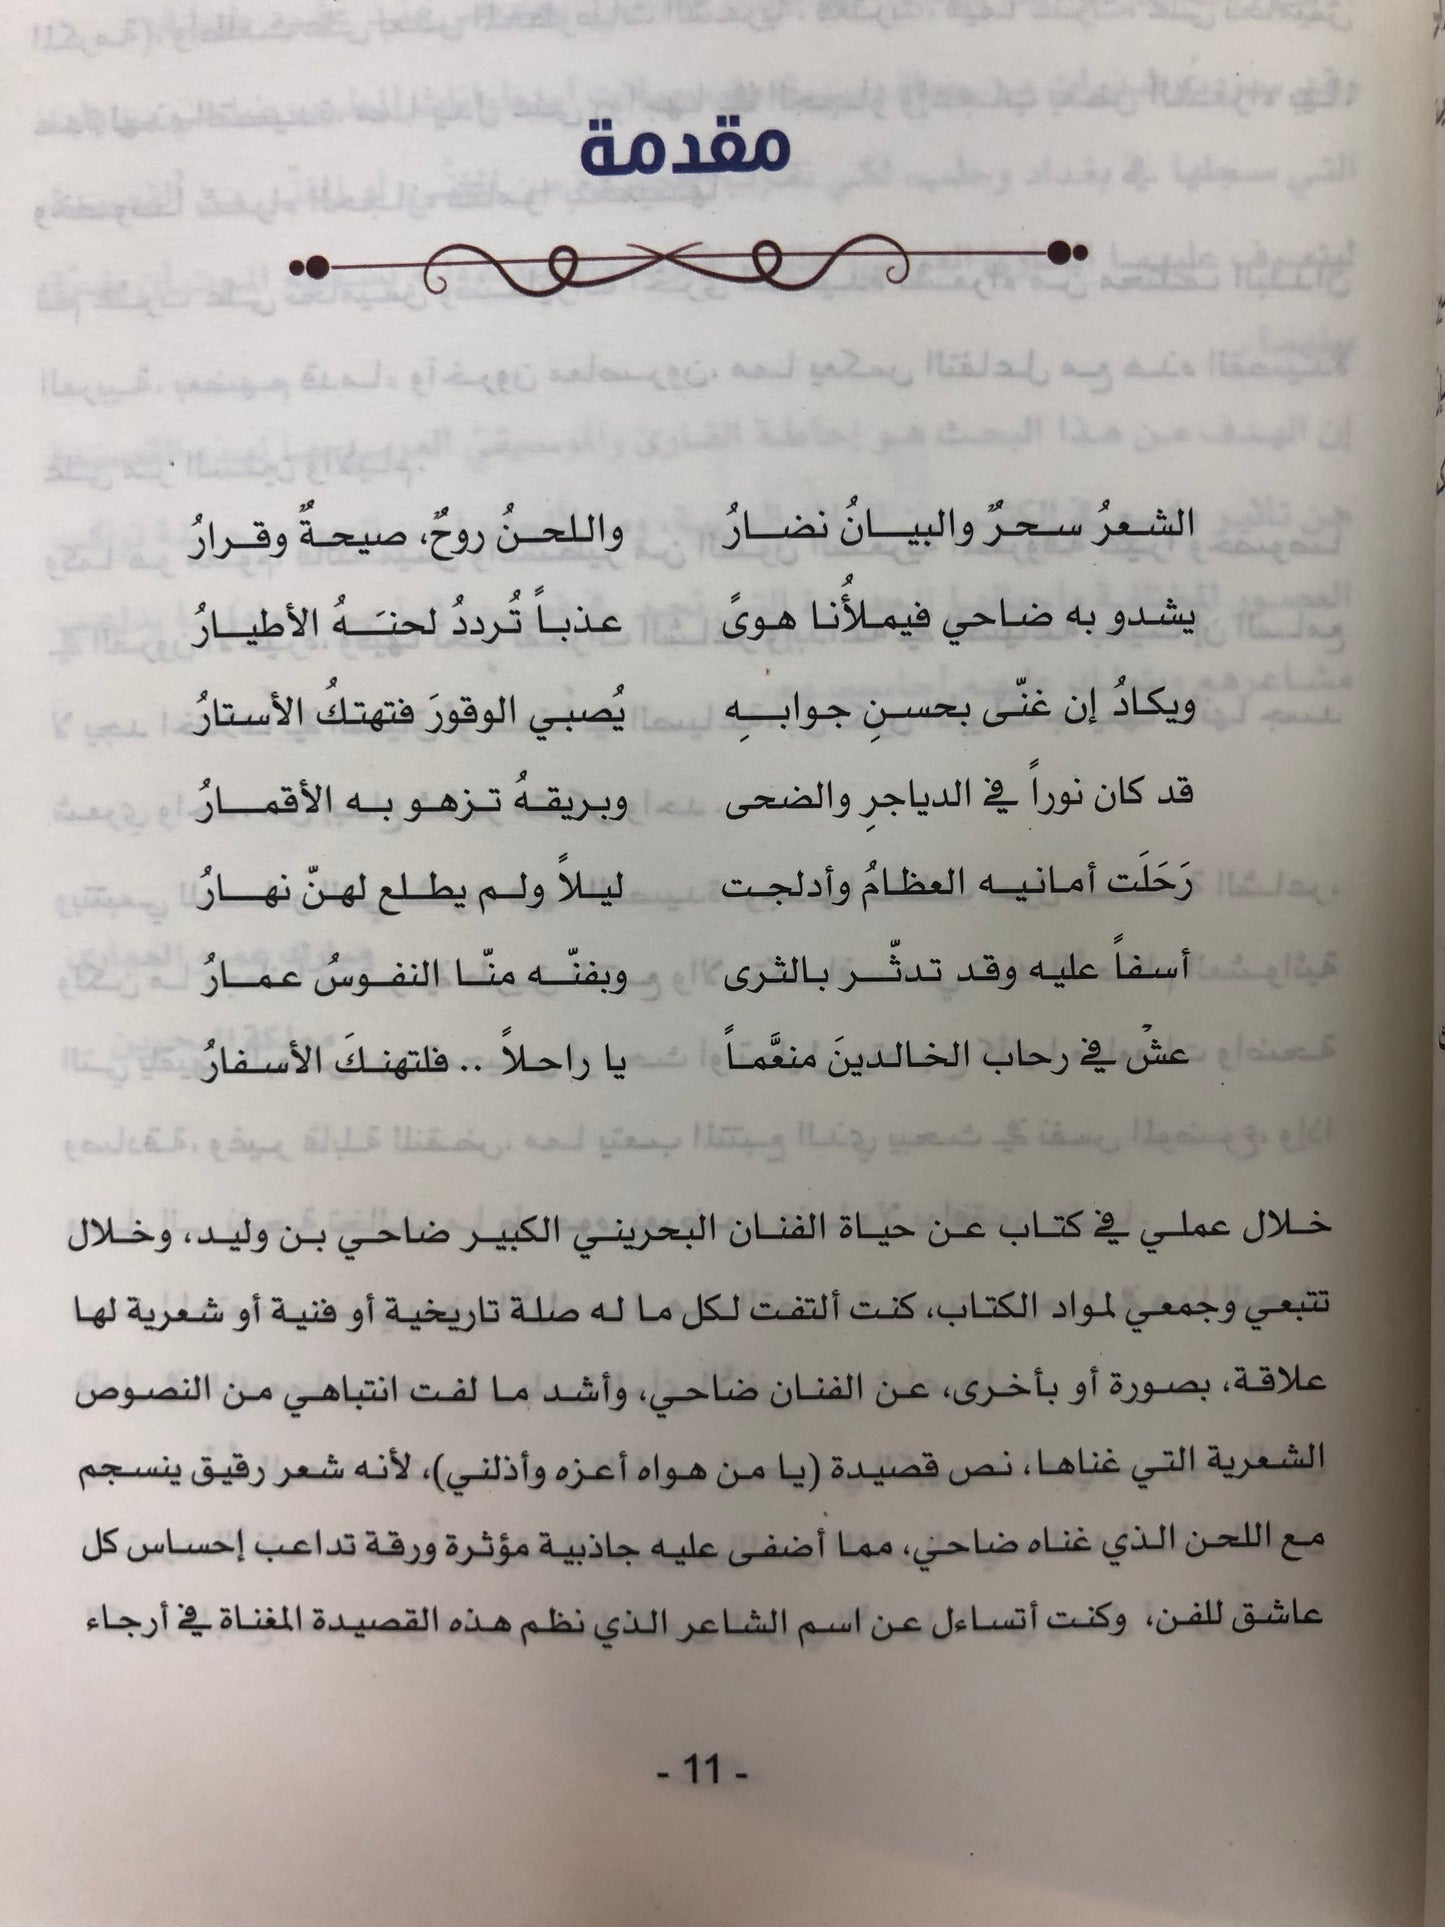 مقدمة
الشعرُ سحرٌ والبيانُ نضارُ واللحنُ روحٌ، صيحةٌ وقرارُ
يشدو به ضاحي فيملأُنا هوىً عذباً تُرددُ لحنَهُ الأطيارُ
ويكادُ إن غنّى بحسنِ جوابهِ يُصبي الوقورَ فتهتكُ الأستارُ
قد كان نوراً في الدياجرِ والضحى وبريقهُ تزهو به الأقمارُ
رَحَلَت أمانيه العظامُ وأدلجت ليلاً ولم يطلع لهنّ نهارُ
أسفاً عليه وقد تدثّر بالثرى وبفنّه منّا النفوسُ عمارُ
عشْ في رحاب الخالدينَ منعَّماً يا راحلاً .. فلتهنكَ الأسفارُ
خلال عملي في كتاب عن حياة الفنان البحريني الكبير ضاحي بن وليد، وخلال
تتبعي وجمعي لمواد الكتاب، كنت ألتفت لكل ما له صلة تاريخية أو فنية أو شعرية لها
علاقة، بصورة أو بأخرى، عن الفنان ضاحي، وأشد ما لفت انتباهي من النصوص
الشعرية التي غناها، نص قصيدة (يا من هواه أعزه وأذلني)، لأنه شعر رقيق ينسجم
مع اللحن الذي غناه ضاحي، مما أضفى عليه جاذبية مؤثرة ورقة تداعب إحساس كل
عاشق للفن، وكنت أتساءل عن اسم الشاعر الذي نظم هذه القصيدة المغناة في أرجاء
- 11 -